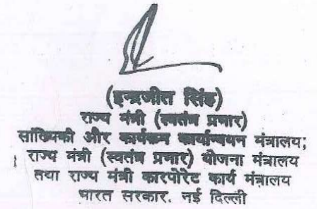 (इन्द्रजीत सिंह)
राज्य मंत्री (स्वतंत्र प्रभार)
सांख्यिकी और कार्यक्रम कार्यान्वयन मंत्रालय;
राज्य मंत्री (स्वतंत्र प्रभार) योजना मंत्रालय
तथा राज्य मंत्री कारपोरेट कार्य मंत्रालय
भारत सरकार, नई दिल्ली